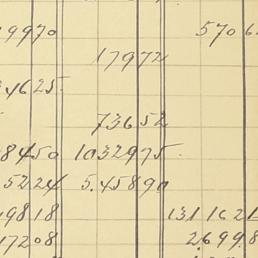 9970 570 6
17972
4625
73652
8450 1032975.
5224 5.45890
9818 1311621
17208 2.699.8